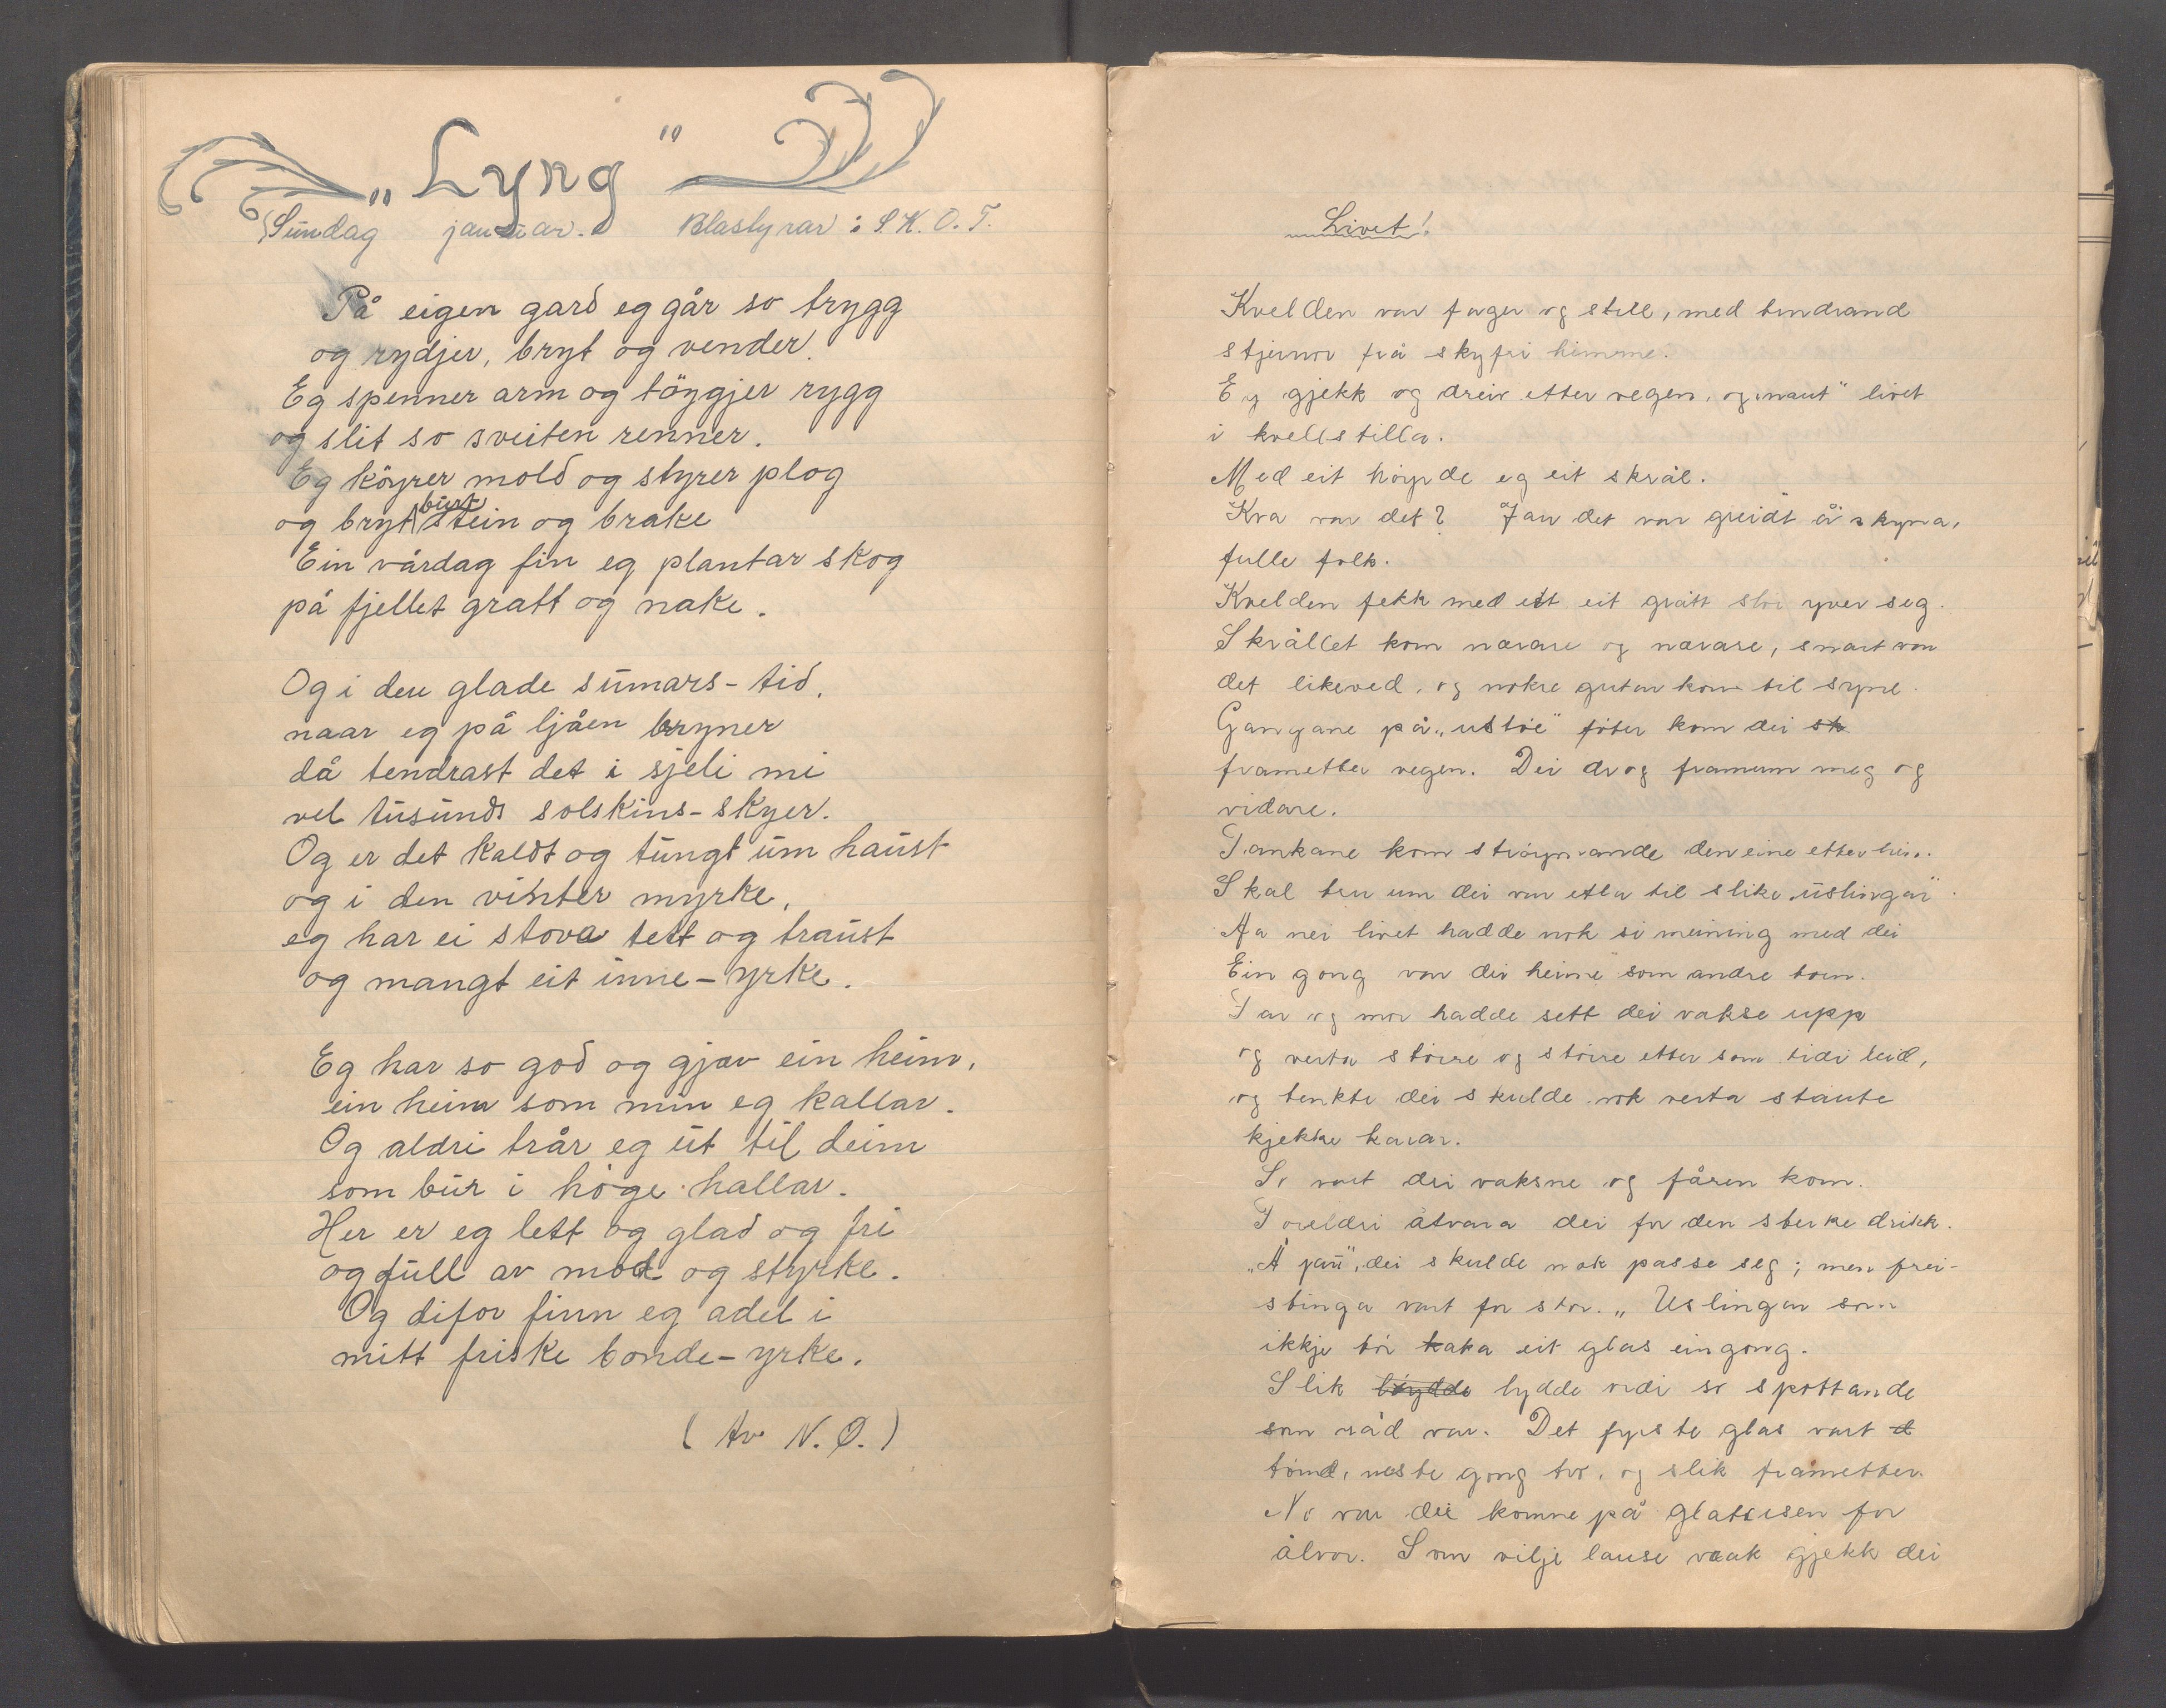 „Lyng"
Sundag januar. Blastyrar: S. K. O. T.
På eigen gard eg går so trygg
og rydjer, bryt og vender.
Eg spenner arm og töygjer rygg
og slit so sveiten renner.
Eg köyrer mold og styrer plog
og bryt burt stein og brake
Ein vårdag fin eg plantar skog
på fjellet gratt og nake.
Og i den glade sumars-tid,
naar eg på ljåen bryner
då tendrast det i sjeli mi
vel tusund solskins-skyer.
Og er det kaldt og tungt um haust
og i den vinter myrke,
eg har ei stova tett og traust
og mangt eit inne-yrke.
Eg har so god og gjæv ein heim,
ein heim som min eg kallar.
Og aldri trår eg ut til deim
som bur i høge hallar.
Her er eg lett og glad og fri
og full av mod og styrke.
Og difor finn eg adel i
mitt friske bonde-yrke.
(Av N. Ø.)
Livet!
Kvelden var fager og still, med tindrand
stjernor frå skyfri himme.
Eg gjekk og dreiv etter vegen, og „naut" livet
i kvellstilla.
Med eit høyrde eg eit skrål.
Kva var det? Jau det var greidt å skyna,
fulle folk.
Kvelden fekk med eit eit grått slør yver seg.
Skrållet kom nærare og nærare, snart var
det likeved, og nokre gutar kom til syne.
Gangane på „ustøe" føter kom dei sk
frametter vegen. Dei drog framum meg og
vidare.
Tankane kom strøymande den eine etter hin.
Skal tru um dei var etla til slike „uslingar".
Aa nei livet hadde nok si meining med dei
Ein gong var dei heime som andre born.
Far og mor hadde sett dei vakse upp
og verta større og større etter som tidi leid,
og tenkte dei skulde nok verta staute
kjekke karar.
So vart dei vaksne og fåren kom.
Foreldri åtvara dei for den sterke drikk.
„Å jau", dei skulde nok passe seg; men frei-
stinga vart for stor. „Uslingar som
ikkje tør taka eit glas eingong.
Slik løydde lydde ordi so spottande
som råd var. Det fyrste glas vart d
tømd, neste gong tvo, og slik frametter.
No var dei komne på glattisen for
ålvor. Som vilje lause vrak gjekk dei